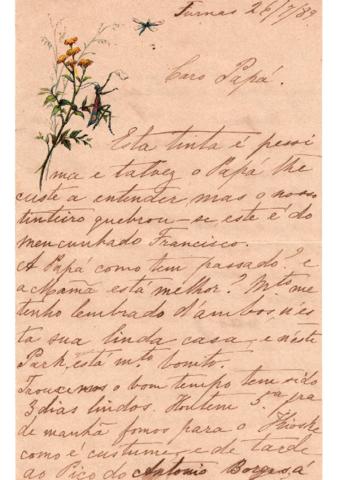 Furnas 26/7/89
Caro Papá.
Esta tinta é pessi
ma e talvez o Papá lhe
custe a entender mas o nosso
tinteiro quebrou-se este é do
meu cunhado Francisco.
A Papá como tem passado? e
a Mamã está melhor? M.to me
tenho lembrado d'ambos, n'es
ta sua linda casa, e n'este
Park, está m.to bonito.
Trouxemos o bom tempo tem sido
3 dias lindos. Hontem 5.a fra
de manhã fomos para o Kioske
como é custume, e de tarde
ao Pico do Antonio Borges, á